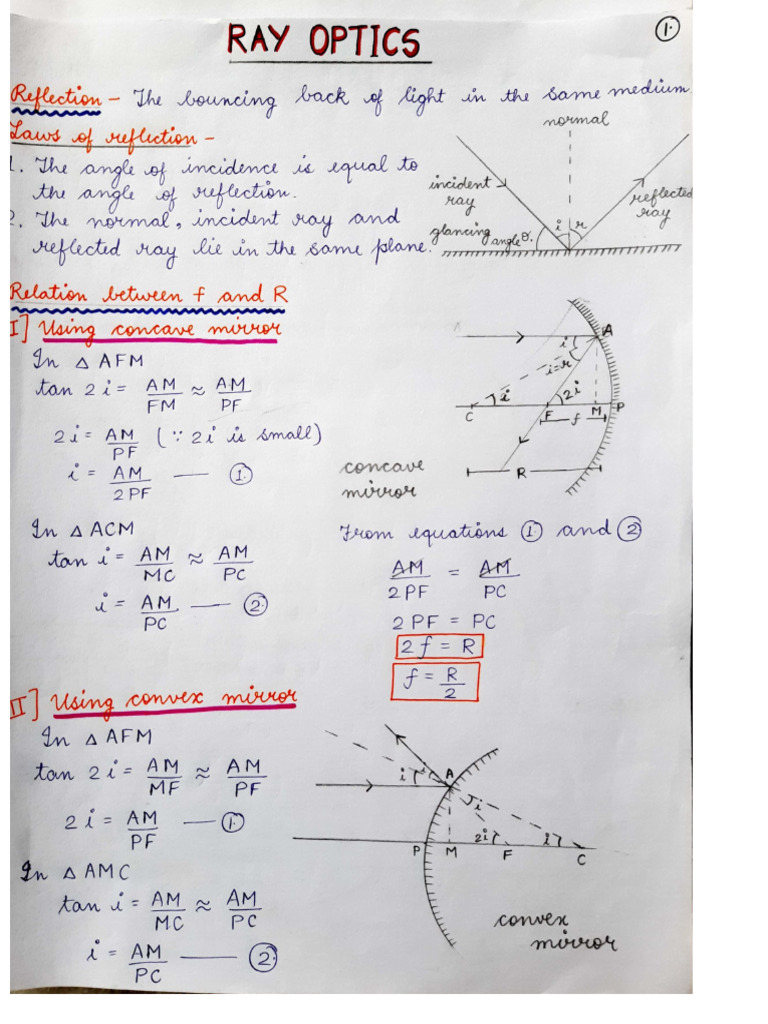 RAY OPTICS
1.
Reflection - The bouncing back of light in the same medium.
Laws of reflection -
1. The angle of incidence is equal to
the angle of reflection.
2. The normal, incident ray and
reflected ray lie in the same plane.
normal
incident
ray
reflected
ray
glancing
angle
i
r
Relation between f and R
I] Using concave mirror
In △ AFM
tan 2i = AM/FM ≈ AM/PF
2i = AM/PF (∵ 2i is small)
i = AM/2PF — ①.
In △ ACM
tan i = AM/MC ≈ AM/PC
i = AM/PC — ②.
A
i
i=r
i
2i
C F M P
f
R
concave
mirror
From equations ① and ②
AM/2PF = AM/PC
2PF = PC
2f = R
f = R/2
II] Using convex mirror
In △ AFM
tan 2i = AM/MF ≈ AM/PF
2i = AM/PF — ①.
In △ AMC
tan i = AM/MC ≈ AM/PC
i = AM/PC — ②.
i
i
A
i
2i
i
P M F C
convex
mirror